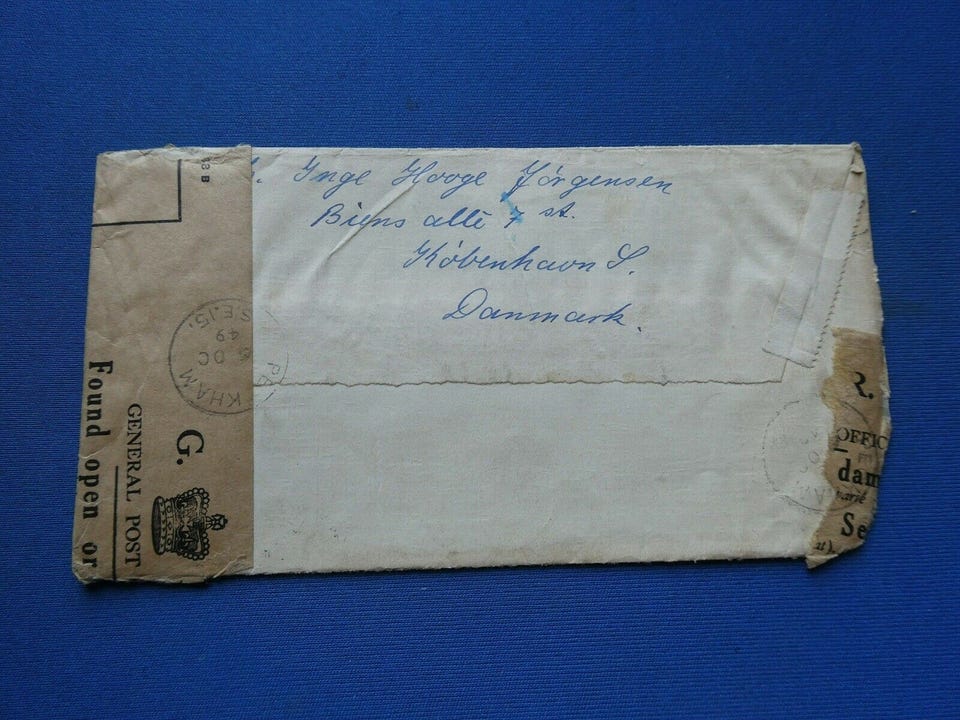 Inge Hooge Jörgensen
Biens allé 7 st.
København S.
Danmark.
43 B
G.
GENERAL POST
Found open or
KHAM
OC
49
S.E.15.
R.
OFFIC
dam
Se